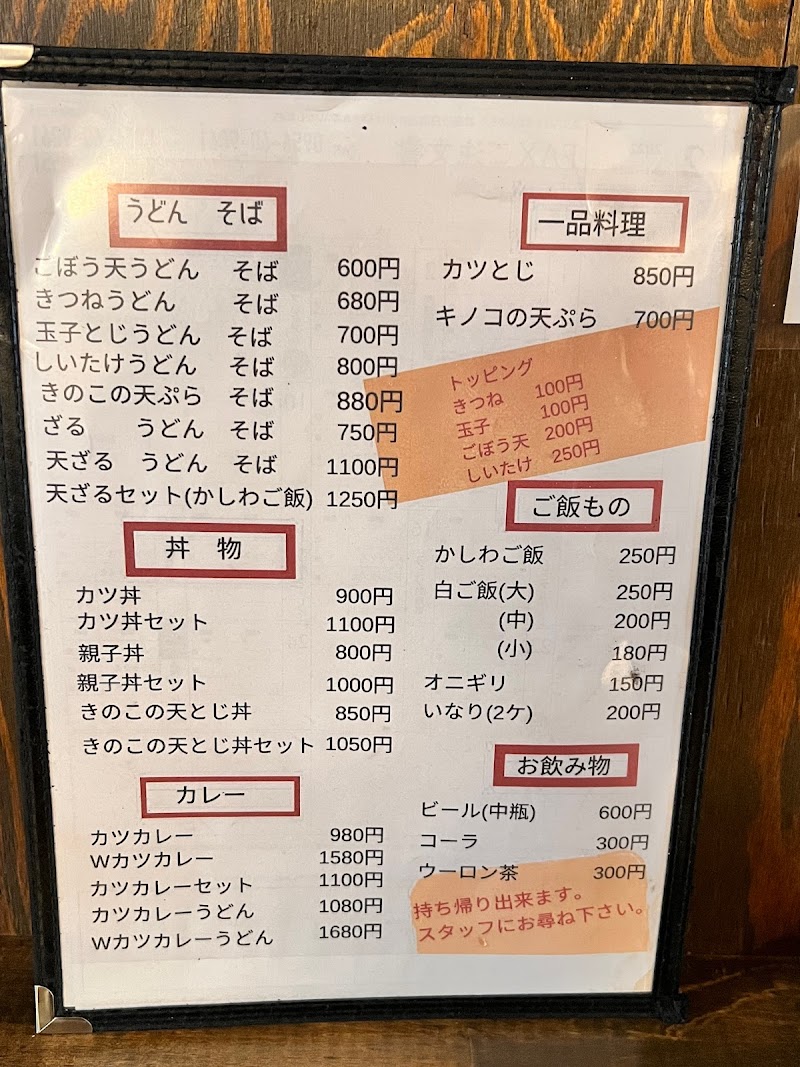 うどん そば
ごぼう天うどん そば 600円
きつねうどん そば 680円
玉子とじうどん そば 700円
しいたけうどん そば 800円
きのこの天ぷら そば 880円
ざる うどん そば 750円
天ざる うどん そば 1100円
天ざるセット(かしわご飯) 1250円
丼 物
カツ丼 900円
カツ丼セット 1100円
親子丼 800円
親子丼セット 1000円
きのこの天とじ丼 850円
きのこの天とじ丼セット 1050円
カレー
カツカレー 980円
Wカツカレー 1580円
カツカレーセット 1100円
カツカレーうどん 1080円
Wカツカレーうどん 1680円
一品料理
カツとじ 850円
キノコの天ぷら 700円
トッピング
きつね 100円
玉子 100円
ごぼう天 200円
しいたけ 250円
ご飯もの
かしわご飯 250円
白ご飯(大) 250円
(中) 200円
(小) 180円
オニギリ 150円
いなり(2ケ) 200円
お飲み物
ビール(中瓶) 600円
コーラ 300円
ウーロン茶 300円
持ち帰り出来ます。
スタッフにお尋ね下さい。